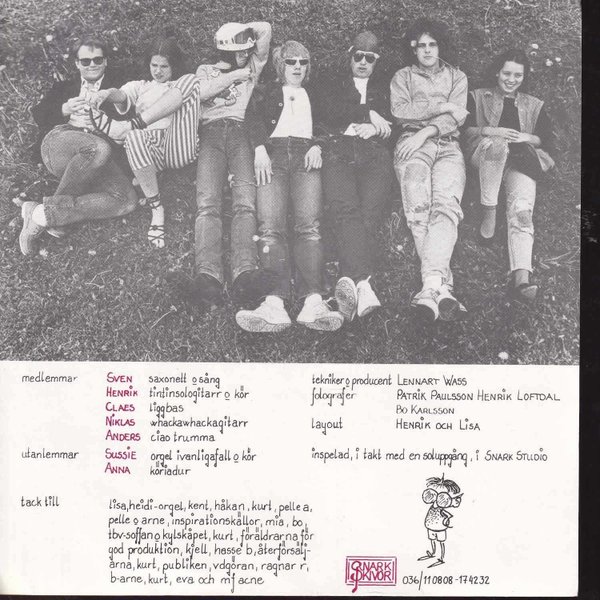 medlemmar
SVEN saxonelt o sång
HENRIK tintinsologitarr o kör
CLAES liggbas
NIKLAS whackawhackagitarr
ANDERS ciao trumma
utanlemmar
SUSSIE orgel ivanligafall o kör
ANNA körladur
tekniker o producent LENNART WASS
fotografer PATRIK PAULSSON HENRIK LOFTDAL
BO KARLSSON
layout HENRIK OCH LISA
inspelad, i takt med en soluppgång, i SNARK STUDIO
tack till
lisa, heidi-orgel, kent, håkan, kurt, pelle a,
pelle o arne, inspirationskällor, mia, bo,
tbv-soffan o kylskåpet, kurt, föräldrarna för
god produktion, kjell, hasse b, återförsälj-
arna, kurt, publiken, vdgöran, ragnar r,
b-arne, kurt, eva och mj acne
SNARK
SKIVOR
036/110808-174232